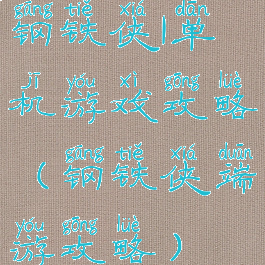 gāng tiě xiá dān
钢铁侠|单
jī yóu xì gōng lüè
机游戏攻略
gāng tiě xiá duān
(钢铁侠端
yóu gōng lüè
游攻略)